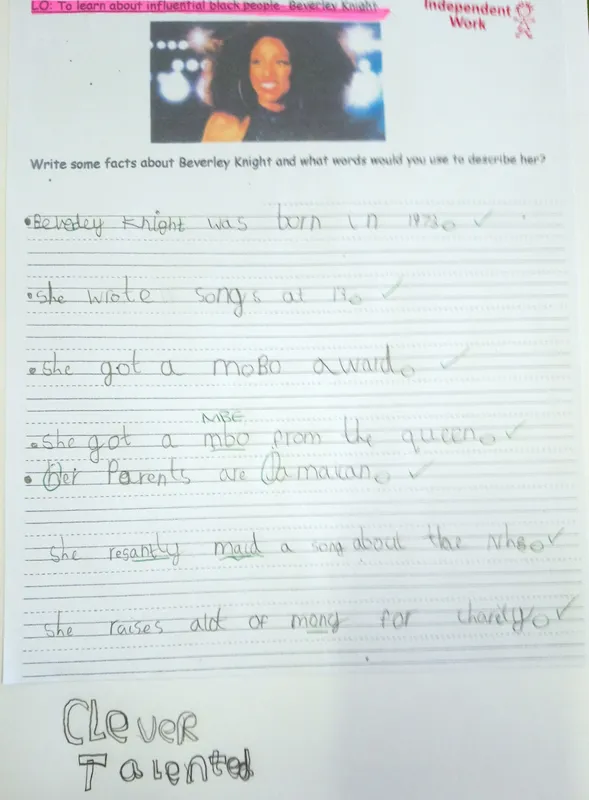 LO: To learn about influential black people- Beverley Knight
Independent
Work
Write some facts about Beverley Knight and what words would you use to describe her?
•Beverley Knight was born in 1973.
•she wrote songs at 13.
•she got a moBo award.
MBE
•she got a mbo from the queen.
• Her Parents are Jamaican.
she resantly maid a song about the NhS.
she raises alot of mony for charity.
CLever
Talented